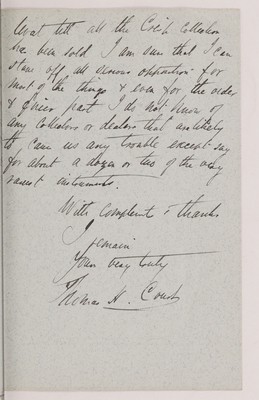 Wait till all the Crisp Collection
has been sold. I am sure that I can
stave off all serious opposition for
most of the things & even for the older
& finer part I do not know of
any collectors or dealers that are likely
to cause us any trouble except say
for about a dozen or two of the very
rarest instruments.
With compliments & thanks
I remain
Yours very truly
Thomas H. Court